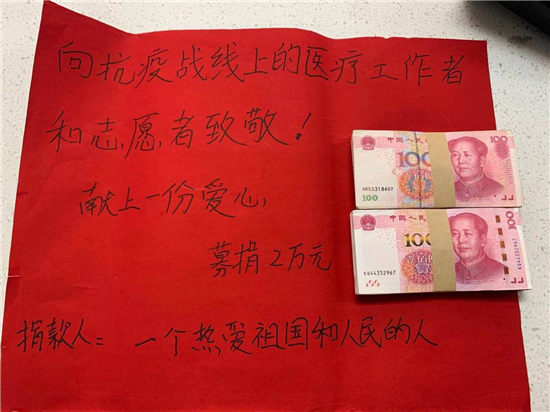 向抗疫战线上的医疗工作者
和志愿者致敬!
献上一份爱心,
募捐2万元
捐款人: 一个热爱祖国和人民的人
中国人民
100
100
100
中国人民
100
100
100
EQ44352967
EQ44352967